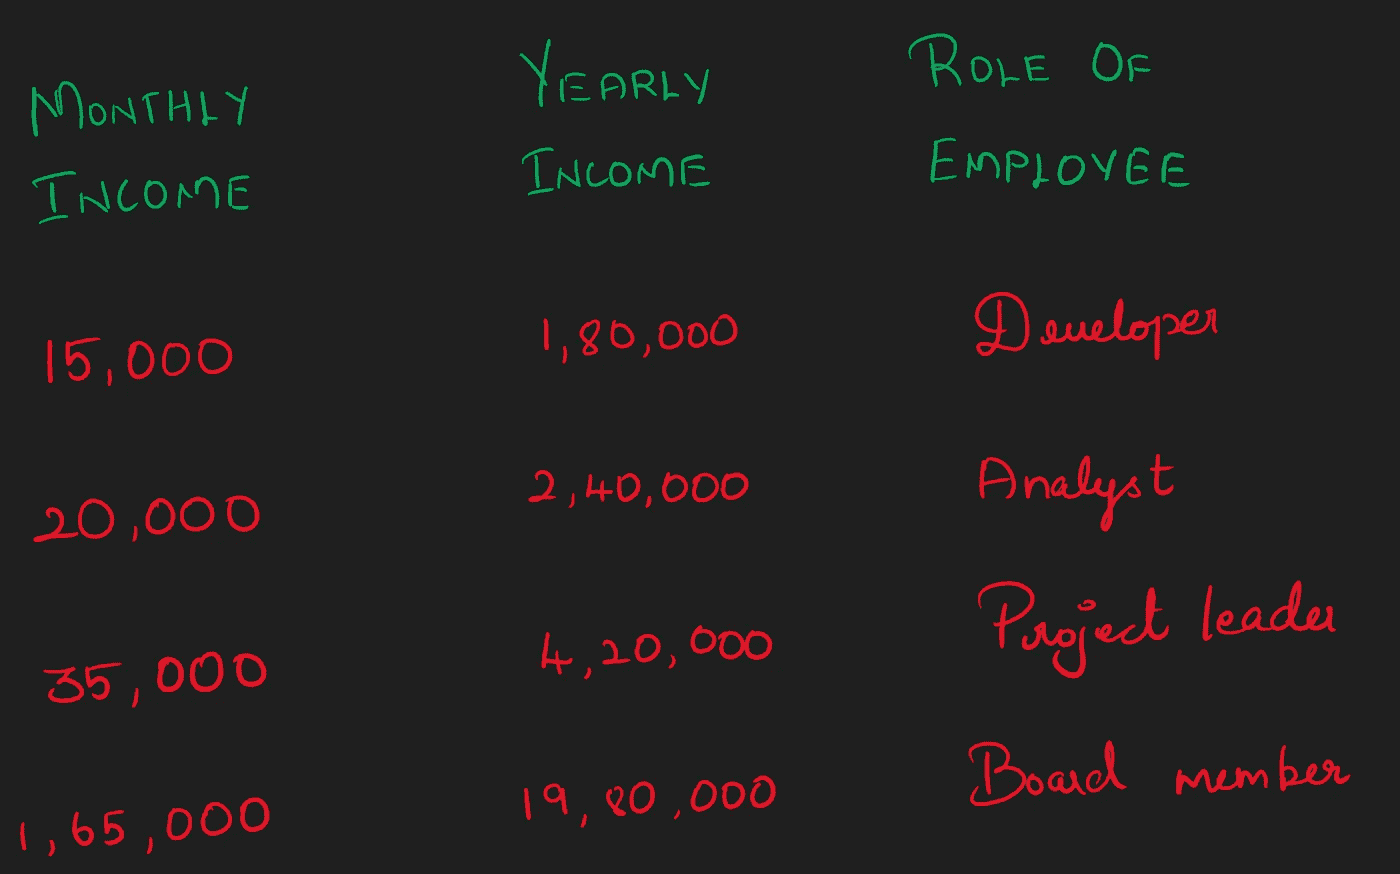 MONTHLY INCOME
YEARLY INCOME
ROLE OF EMPLOYEE
15,000 1,80,000 Developer
20,000 2,40,000 Analyst
35,000 4,20,000 Project leader
1,65,000 19,80,000 Board member